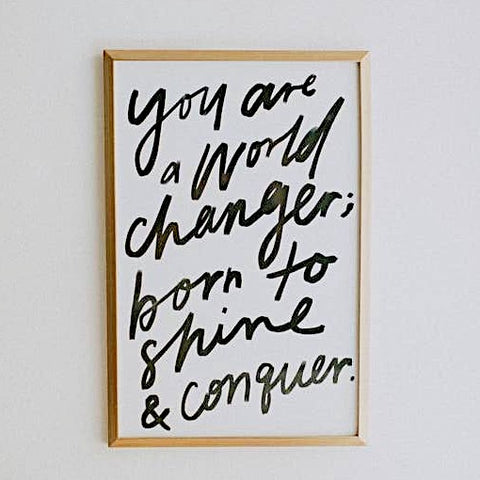 you are
a world
changer;
born to
shine
& conquer.